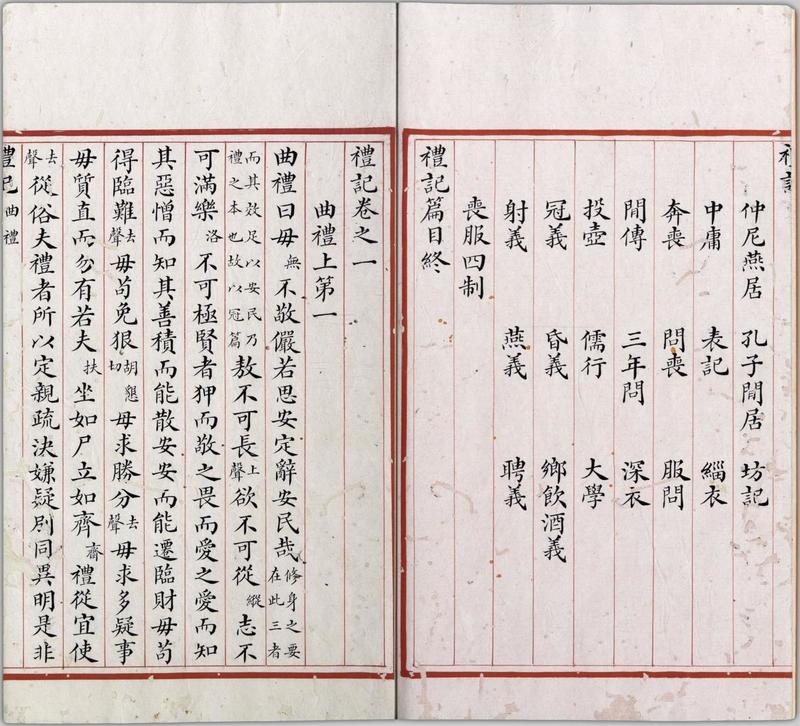 禮記
仲尼燕居 孔子閒居 坊記
中庸 表記 緇衣
奔喪 問喪 服問
閒傳 三年問 深衣
投壺 儒行 大學
冠義 昏義 鄉飲酒義
射義 燕義 聘義
喪服四制
禮記篇目終
禮記卷之一
曲禮上第一
曲禮曰毋無不敬儼若思安定辭安民哉修身之要在此三者
而其效足以安民乃禮之本也故以冠篇敖不可長上聲欲不可從縱志不
可滿樂洛不可極賢者狎而敬之畏而愛之愛而知
其惡憎而知其善積而能散安安而能遷臨財毋苟
得臨難去聲毋苟免狠胡懇切毋求勝分去聲毋求多疑事
毋質直而勿有若夫扶坐如尸立如齊齋禮從宜使
去聲從俗夫禮者所以定親疏決嫌疑別同異明是非
禮記 曲禮